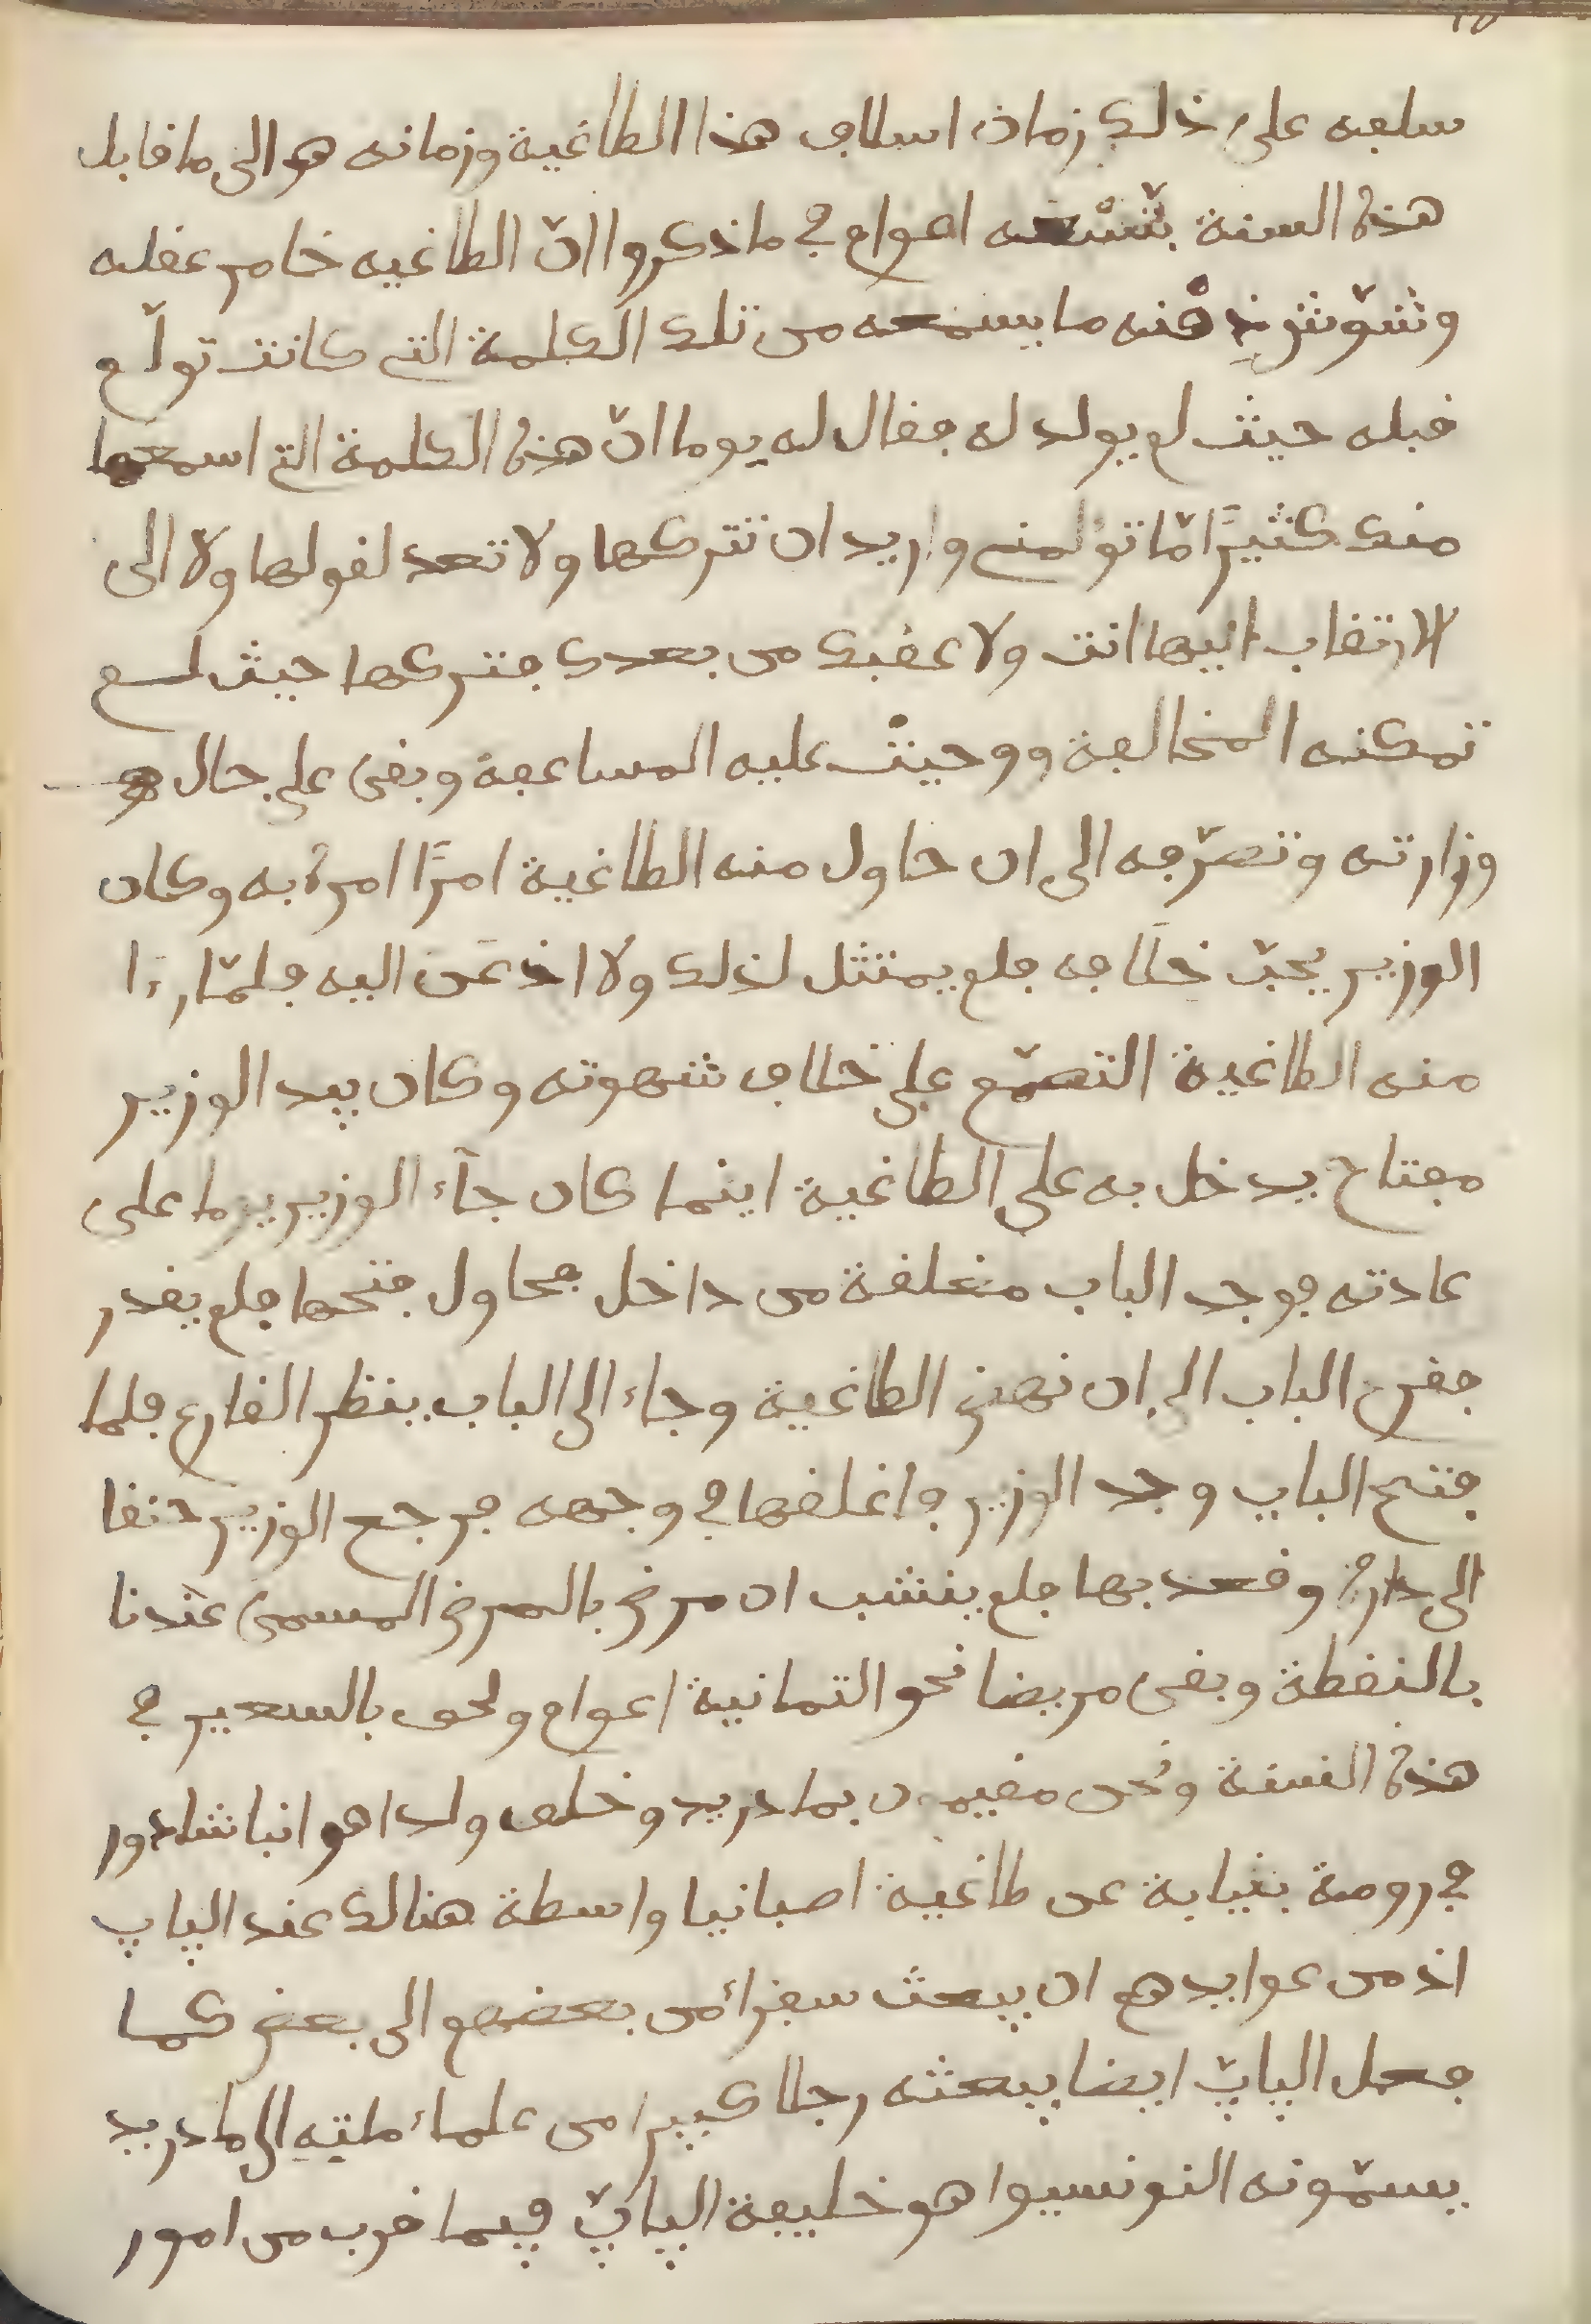 سلفه على ذلك زمان اسلاف هذا الطاغية وزمانه هو الى ما قابل
هذه السنة بتسعه اعوام في ما ذكروا انّ الطاغيه خامر عقله
وشوّش ذهنه ما يسمعه من تلك الكلمة التي كانت تولّع
قبله حيث لم يولد له فقال له يوما انّ هذه الكلمة التي اسمعها
منك كثيرًا مّا تؤلمني واريد ان تتركها ولا تعد لقولها ولا الى
الارتقاب اليها انت ولا عقبك من بعدك فتركها حيث لم
تمكنه المخالفة ووجبت عليه المساعفة وبقى على حال
وزارته وتصرّفه الى ان حاول منه الطاغية امرًا امره به وكان
الوزير يحبّ خلافه فلم يمتثل لذلك ولا اذعن اليه فلمّا رءا
منه الطاغية التصمّم على خلاف شهوته وكان بيد الوزير
مفتاح يدخل به على الطاغية اينما كان جآء الوزير يوما على
عادته فوجد الباب مغلقة من داخل فحاول فتحها فلم يقدر
فقرع الباب الى ان نهض الطاغية وجاء الى الباب ينظر القارع فلما
فتح الباب وجد الوزير فاغلقها في وجهه فرجع الوزير حنقا
الى داره وقعد بها فلم ينشب ان مرض بالمرض المسمى عندنا
بالنقطة وبقى مريضا نحو الثمانية اعوام ولحق بالسعير في
هذه السنة ونحن مقيمون بمادريد وخلف ولدا هو انباشادور
في رومة بنيابة عن طاغية اصبانيا واسطة هنالك عند الپاپ
اذ من عوايدهم ان يبعث سفراء من بعضهم الى بعض كما
فعل الپاپّ ايضا ببعثه رجلا كبيرا من علماء ملته الى مادريد
يسمّونه النونسيوا هو خليفة الپاپّ فيما قرب من امور